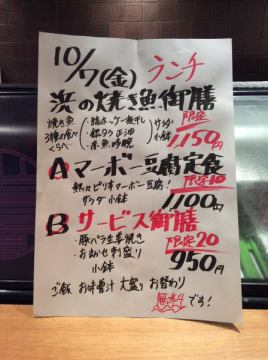 10/7(金) ランチ
浜の焼き魚御膳
焼き魚3種の食べくらべ
・縞ホッケ一夜干し
・銀ダラ正油
・赤魚吟醸
サラダ
小鉢
限定
1,150円
Aマーボー豆腐定食
熱々ピリ辛マーボー豆腐!
限定10
サラダ 小鉢
1100円
B サービス御膳
・豚バラ生姜焼き
限定20
・おまかせ刺盛り
950円
小鉢
ご飯 お味噌汁 大盛り お替わり
無料です!